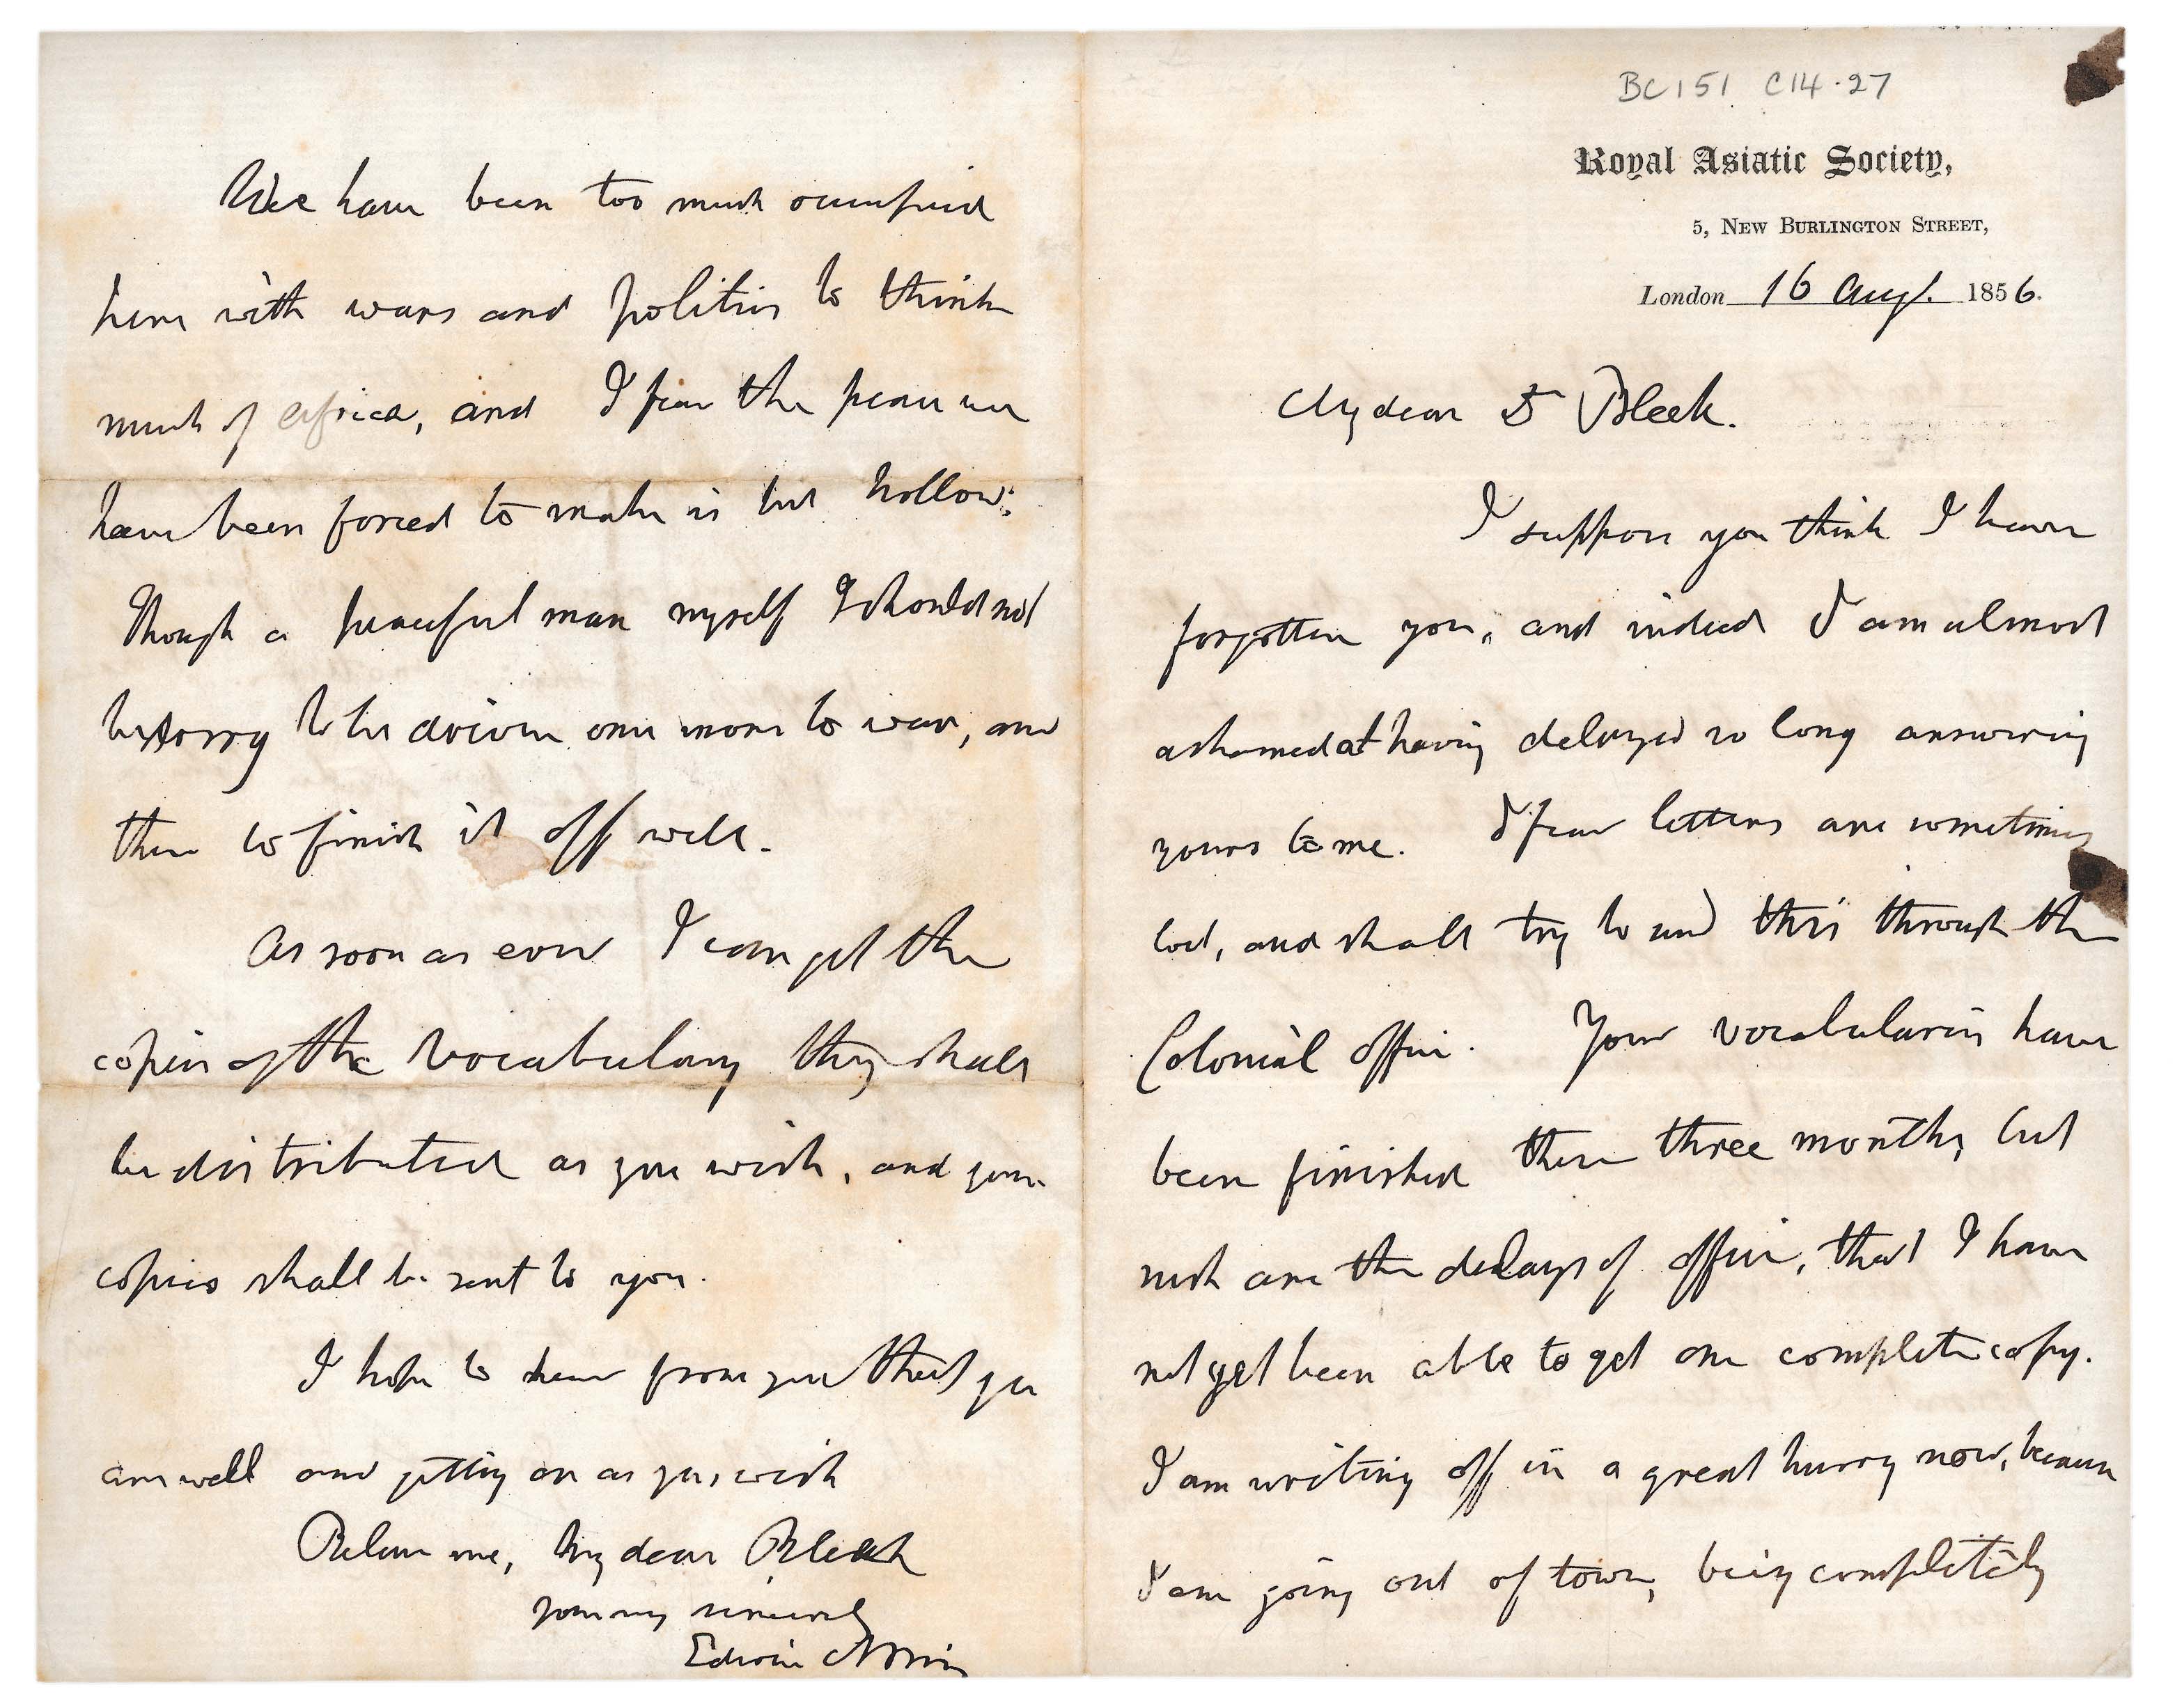 BC151 C14.27
Royal Asiatic Society,
5, New Burlington Street,
London 16 Augt. 1856.
My dear Dr Bleek.
I suppose you think I have
forgotten you, and indeed I am almost
ashamed at having delayed so long answering
yours to me. I fear letters are sometimes
lost, and shall try to send this through the
Colonial office. Your vocabularies have
been finished these three months, but
such are the delays of office, that I have
not yet been able to get one complete copy.
I am writing off in a great hurry now, because
I am going out of town, being completely
We have been too much occupied
here with wars and politics to think
much of Africa, and I fear the peace we
have been forced to make is but hollow:
Though a peaceful man myself I should not
be sorry to be driven once more to war, and
then to finish it off well.
As soon as ever I can get the
copies of the Vocabulary they shall
be distributed as you wish, and your
copies shall be sent to you.
I hope to hear from you that you
are well and getting on as you wish
Believe me, my dear Bleek
yours very sincerely
Edwin Norris